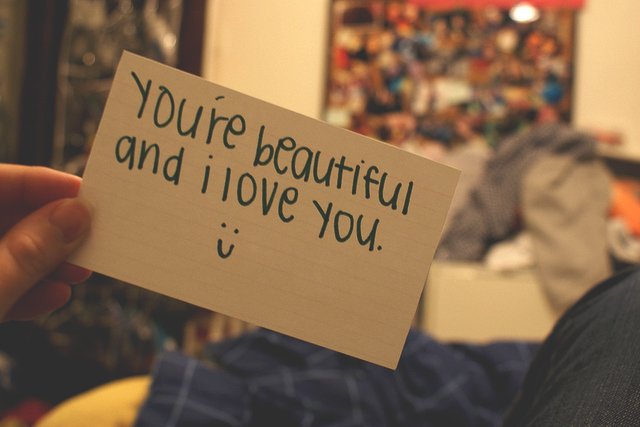 you're beautiful
and i love you.
ü